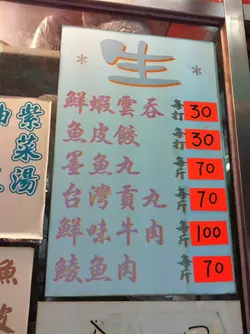 生
鮮蝦雲吞 每打 30
魚皮餃 每打 30
墨魚丸 每斤 70
台灣貢丸 每斤 70
鮮味牛肉 每斤 100
鯪魚肉 每斤 70
紫菜湯
魚